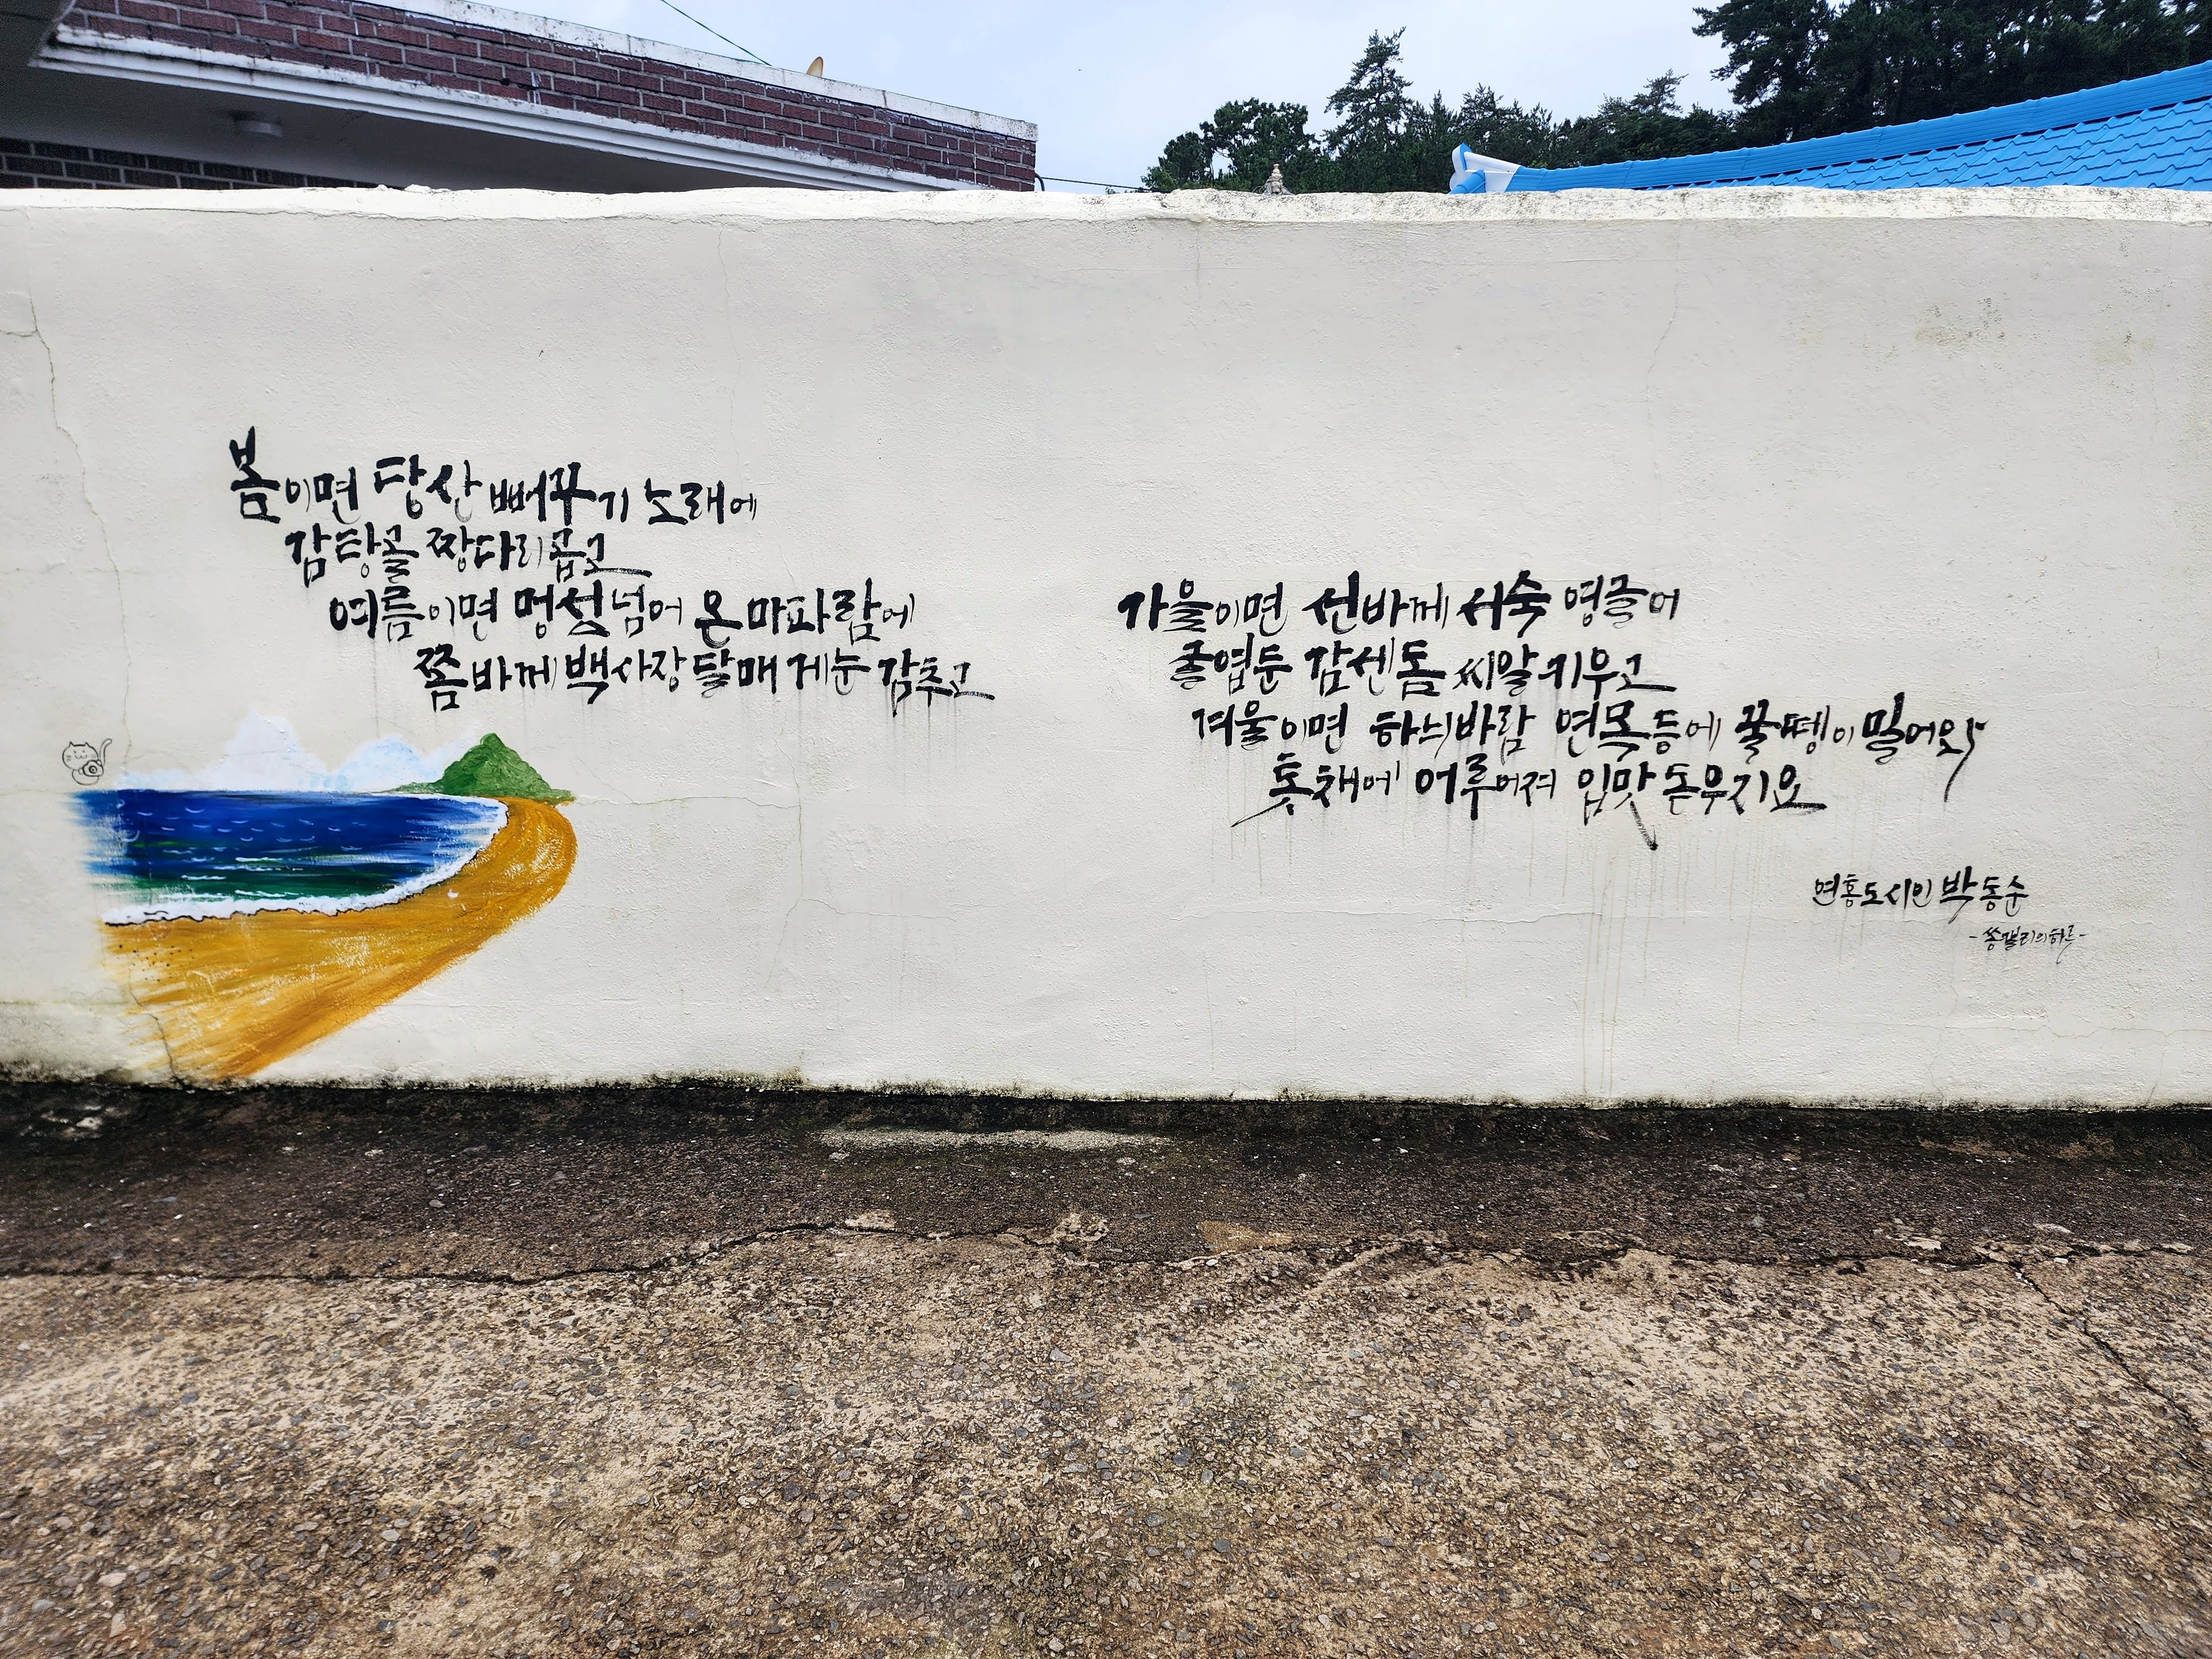 봄이면 당산 뻐꾸기 노래에
감탕골 짱다리 곱고
여름이면 멍섬 넘어 온 마파람에
쫌바께 백사장 달매 게눈 감추고
가을이면 선바께 서숙 영글어
굴엽둔 감센돔 씨알 키우고
겨울이면 하늬바람 연목등에 꿀떼이 밀어와
톳채에 어루어져 입맛 돋우지요
연홍도시인 박동순
-쏭갤러리의하루-